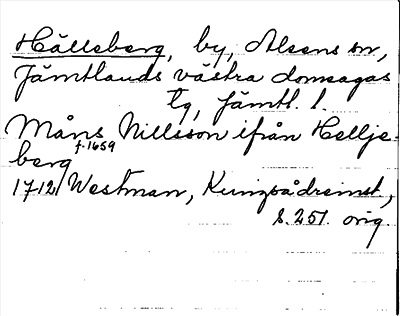 Hälleberg, by, Alsens sn,
Jämtlands västra domsagas
tg, Jämtl. l.
Måns Nillsson ifrån Hellje-
berg f. 1659
1712 Westman, Kungsådreinst,
s. 251. orig.